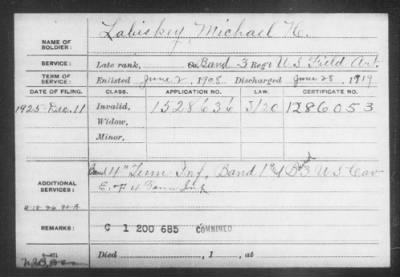 NAME OF SOLDIER: Labiskey, Michael H.
SERVICE: Late rank, Co. Band 3 Reg't U S Field Art.
TERM OF SERVICE: Enlisted June 2, 1908 Discharged June 28, 1919
DATE OF FILING. CLASS. APPLICATION NO. LAW. CERTIFICATE NO.
1925-Dec.11 Invalid, 1528636 3/20 1286053
Widow,
Minor,
ADDITIONAL SERVICES: Band 4" Tenn Inf, Band 1st & Band 3 U S Cav
E. & F 4 Tenn Inf
REMARKS: C 1 200 685 COMBINED
Died , 1 , at